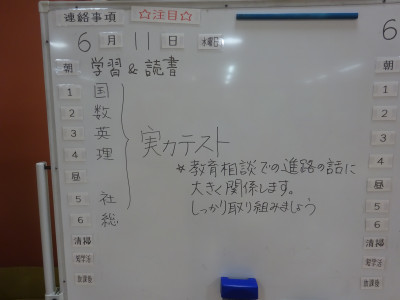 連絡事項 ☆注目☆
6月11日 水曜日
朝 学習&読書
1 国
2 数
3 英
4 理
実力テスト
*教育相談での進路の話に
大きく関係します。
しっかり取り組みましょう
昼
5 社
6 総
清掃
放課後
6
1
2
3
4
昼
5
6
清掃